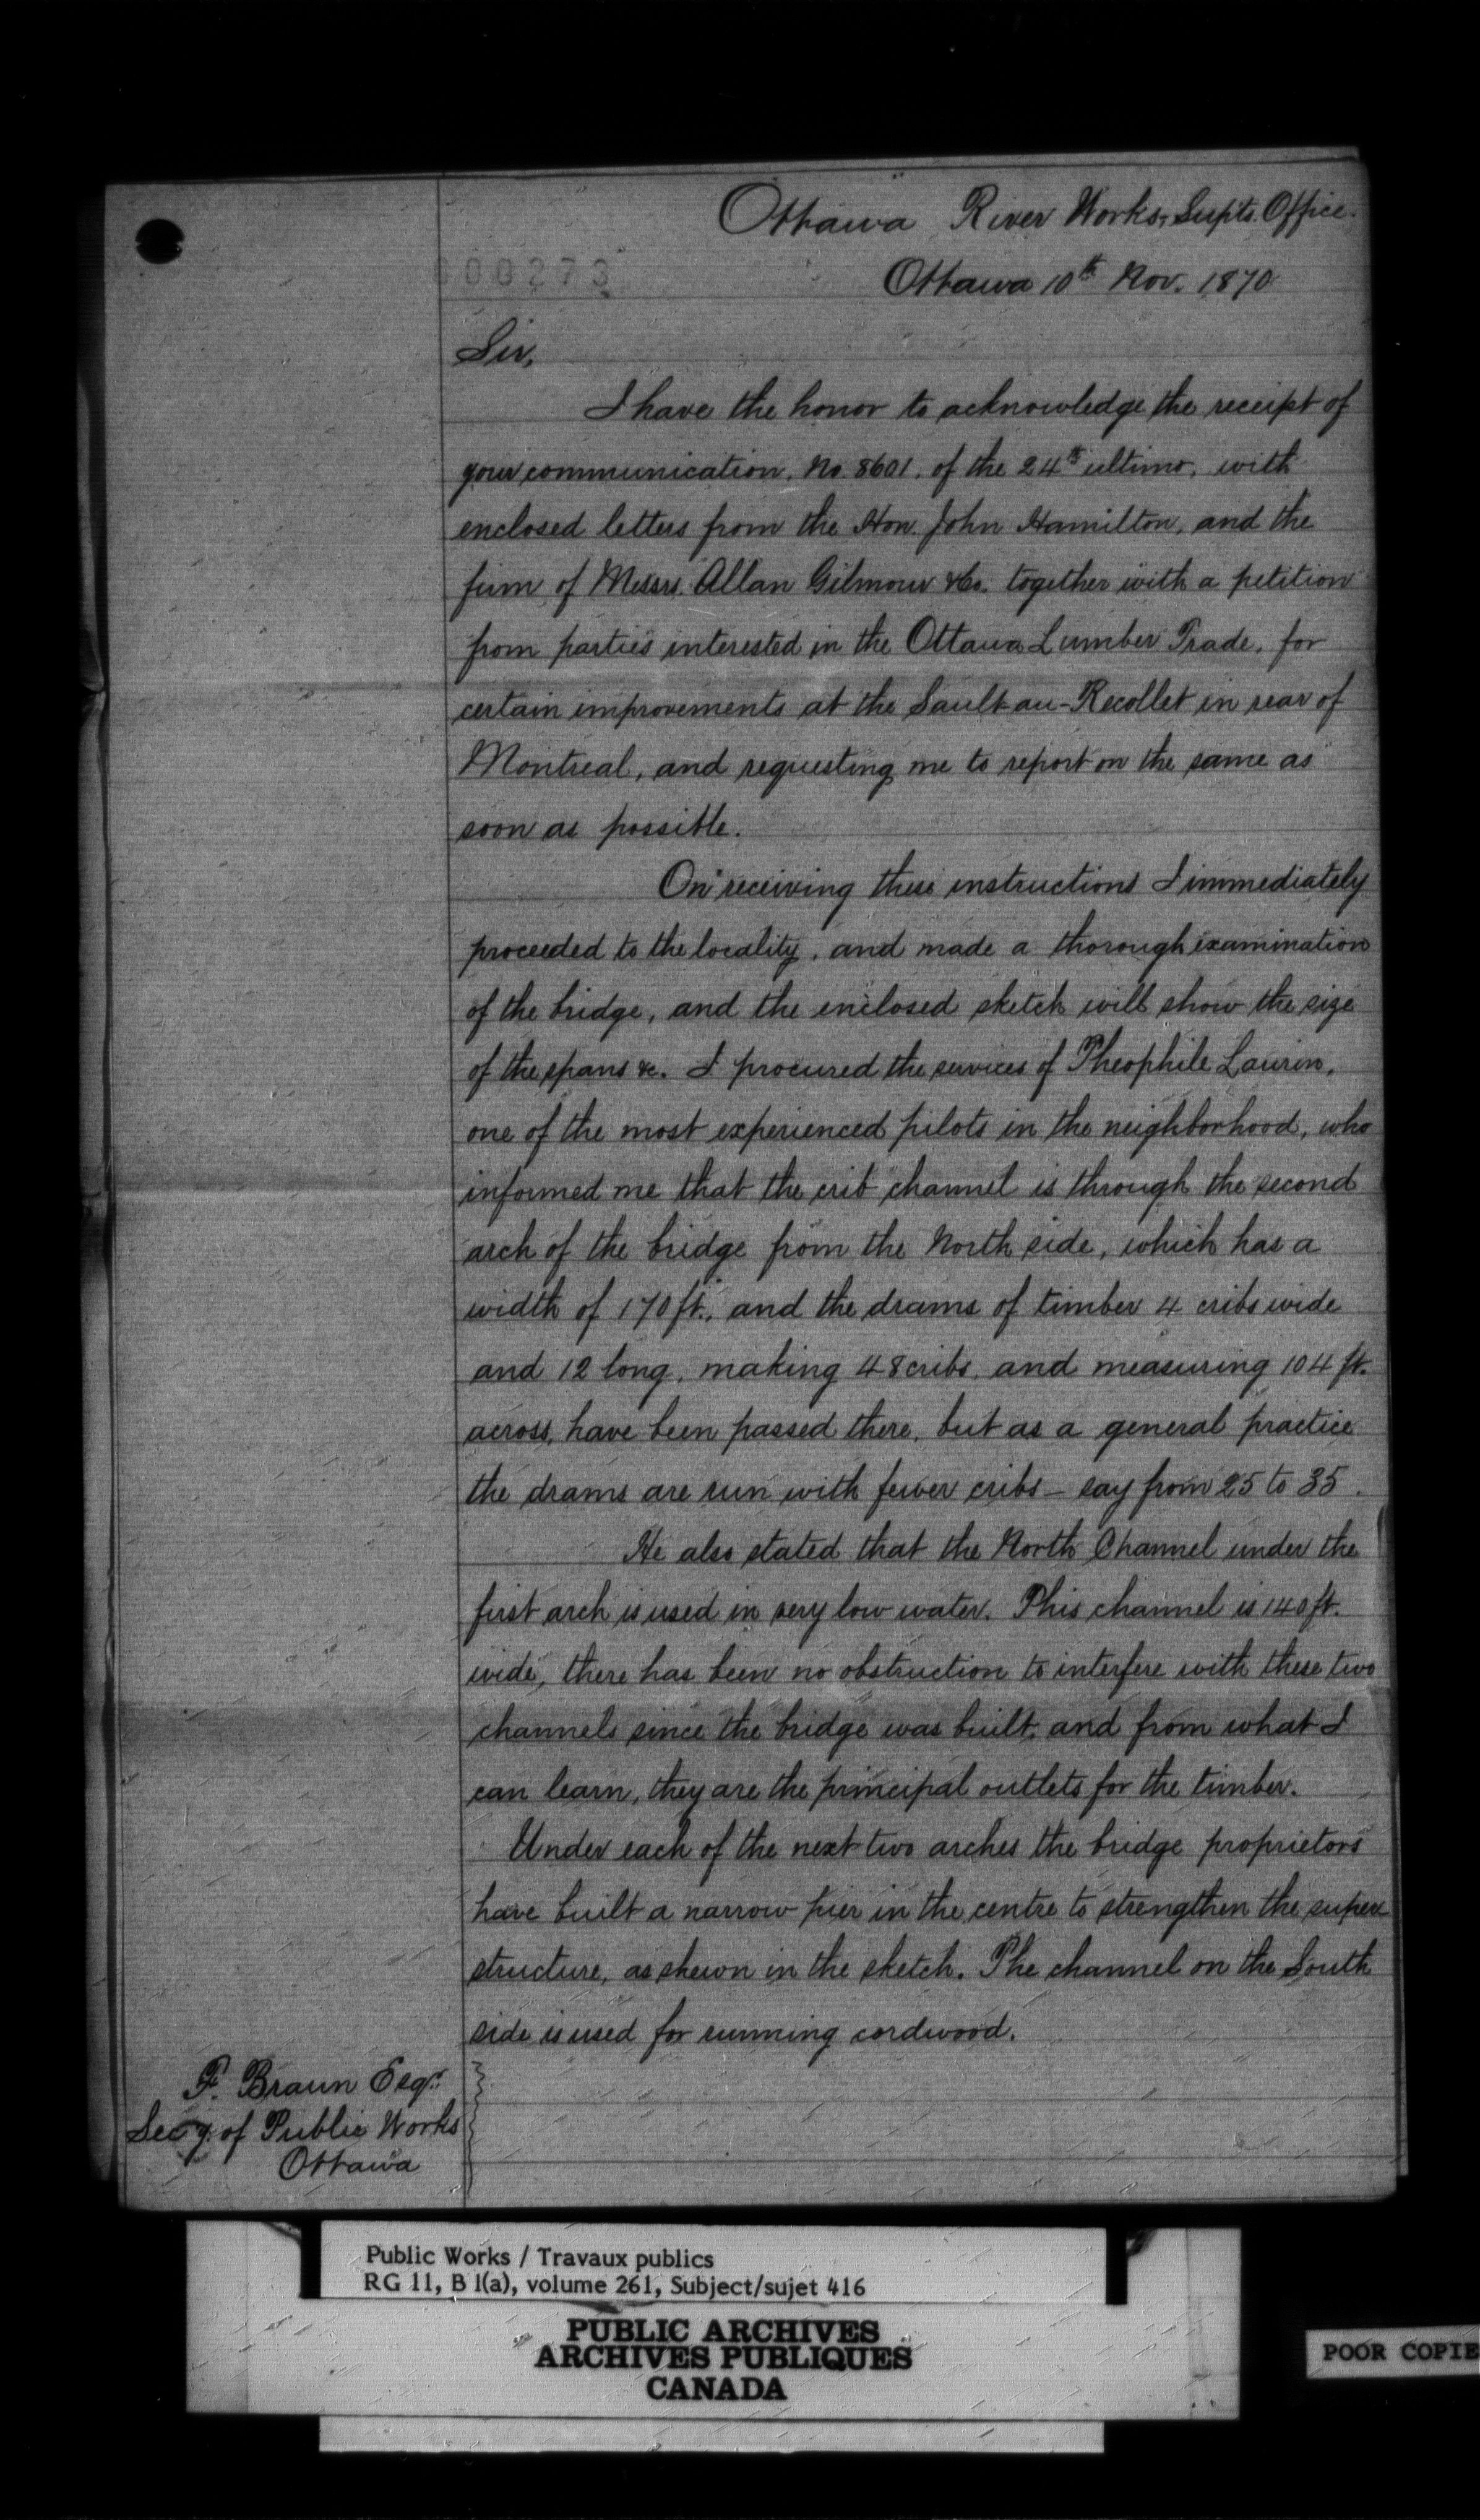 Ottawa River Works, Supts. Office.
000273
Ottawa 10th Nov. 1870
Sir,
I have the honor to acknowledge the receipt of
your communication, No. 8601, of the 24th ultimo, with
enclosed letters from the Hon. John Hamilton, and the
firm of Messrs. Allan Gilmour & Co. together with a petition
from parties interested in the Ottawa Lumber Trade, for
certain improvements at the Sault-au-Recollet in rear of
Montreal, and requesting me to report on the same as
soon as possible.
On receiving these instructions I immediately
proceeded to the locality, and made a thorough examination
of the bridge, and the enclosed sketch will show the size
of the spans &c. I procured the services of Theophile Laurin,
one of the most experienced pilots in the neighborhood, who
informed me that the crib channel is through the second
arch of the bridge from the North side, which has a
width of 170 ft., and the drams of timber 4 cribs wide
and 12 long, making 48 cribs, and measuring 104 ft.
across, have been passed there, but as a general practice
the drams are run with fewer cribs – say from 25 to 35.
He also stated that the North Channel under the
first arch is used in very low water. This channel is 140 ft.
wide, there has been no obstruction to interfere with these two
channels since the bridge was built, and from what I
can learn, they are the principal outlets for the timber.
Under each of the next two arches the bridge proprietors
have built a narrow pier in the centre to strengthen the super
structure, as shewn in the sketch. The channel on the South
side is used for running cordwood.
F. Braun Esqr.
Secy. of Public Works
Ottawa
Public Works / Travaux publics
RG 11, B 1(a), volume 261, Subject/sujet 416
PUBLIC ARCHIVES
ARCHIVES PUBLIQUES
CANADA
POOR COPIE